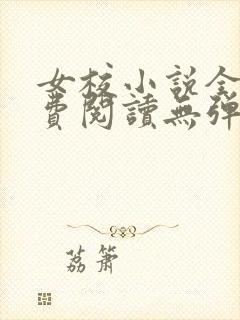 女校小說全
費閱讀無彈
荔簫